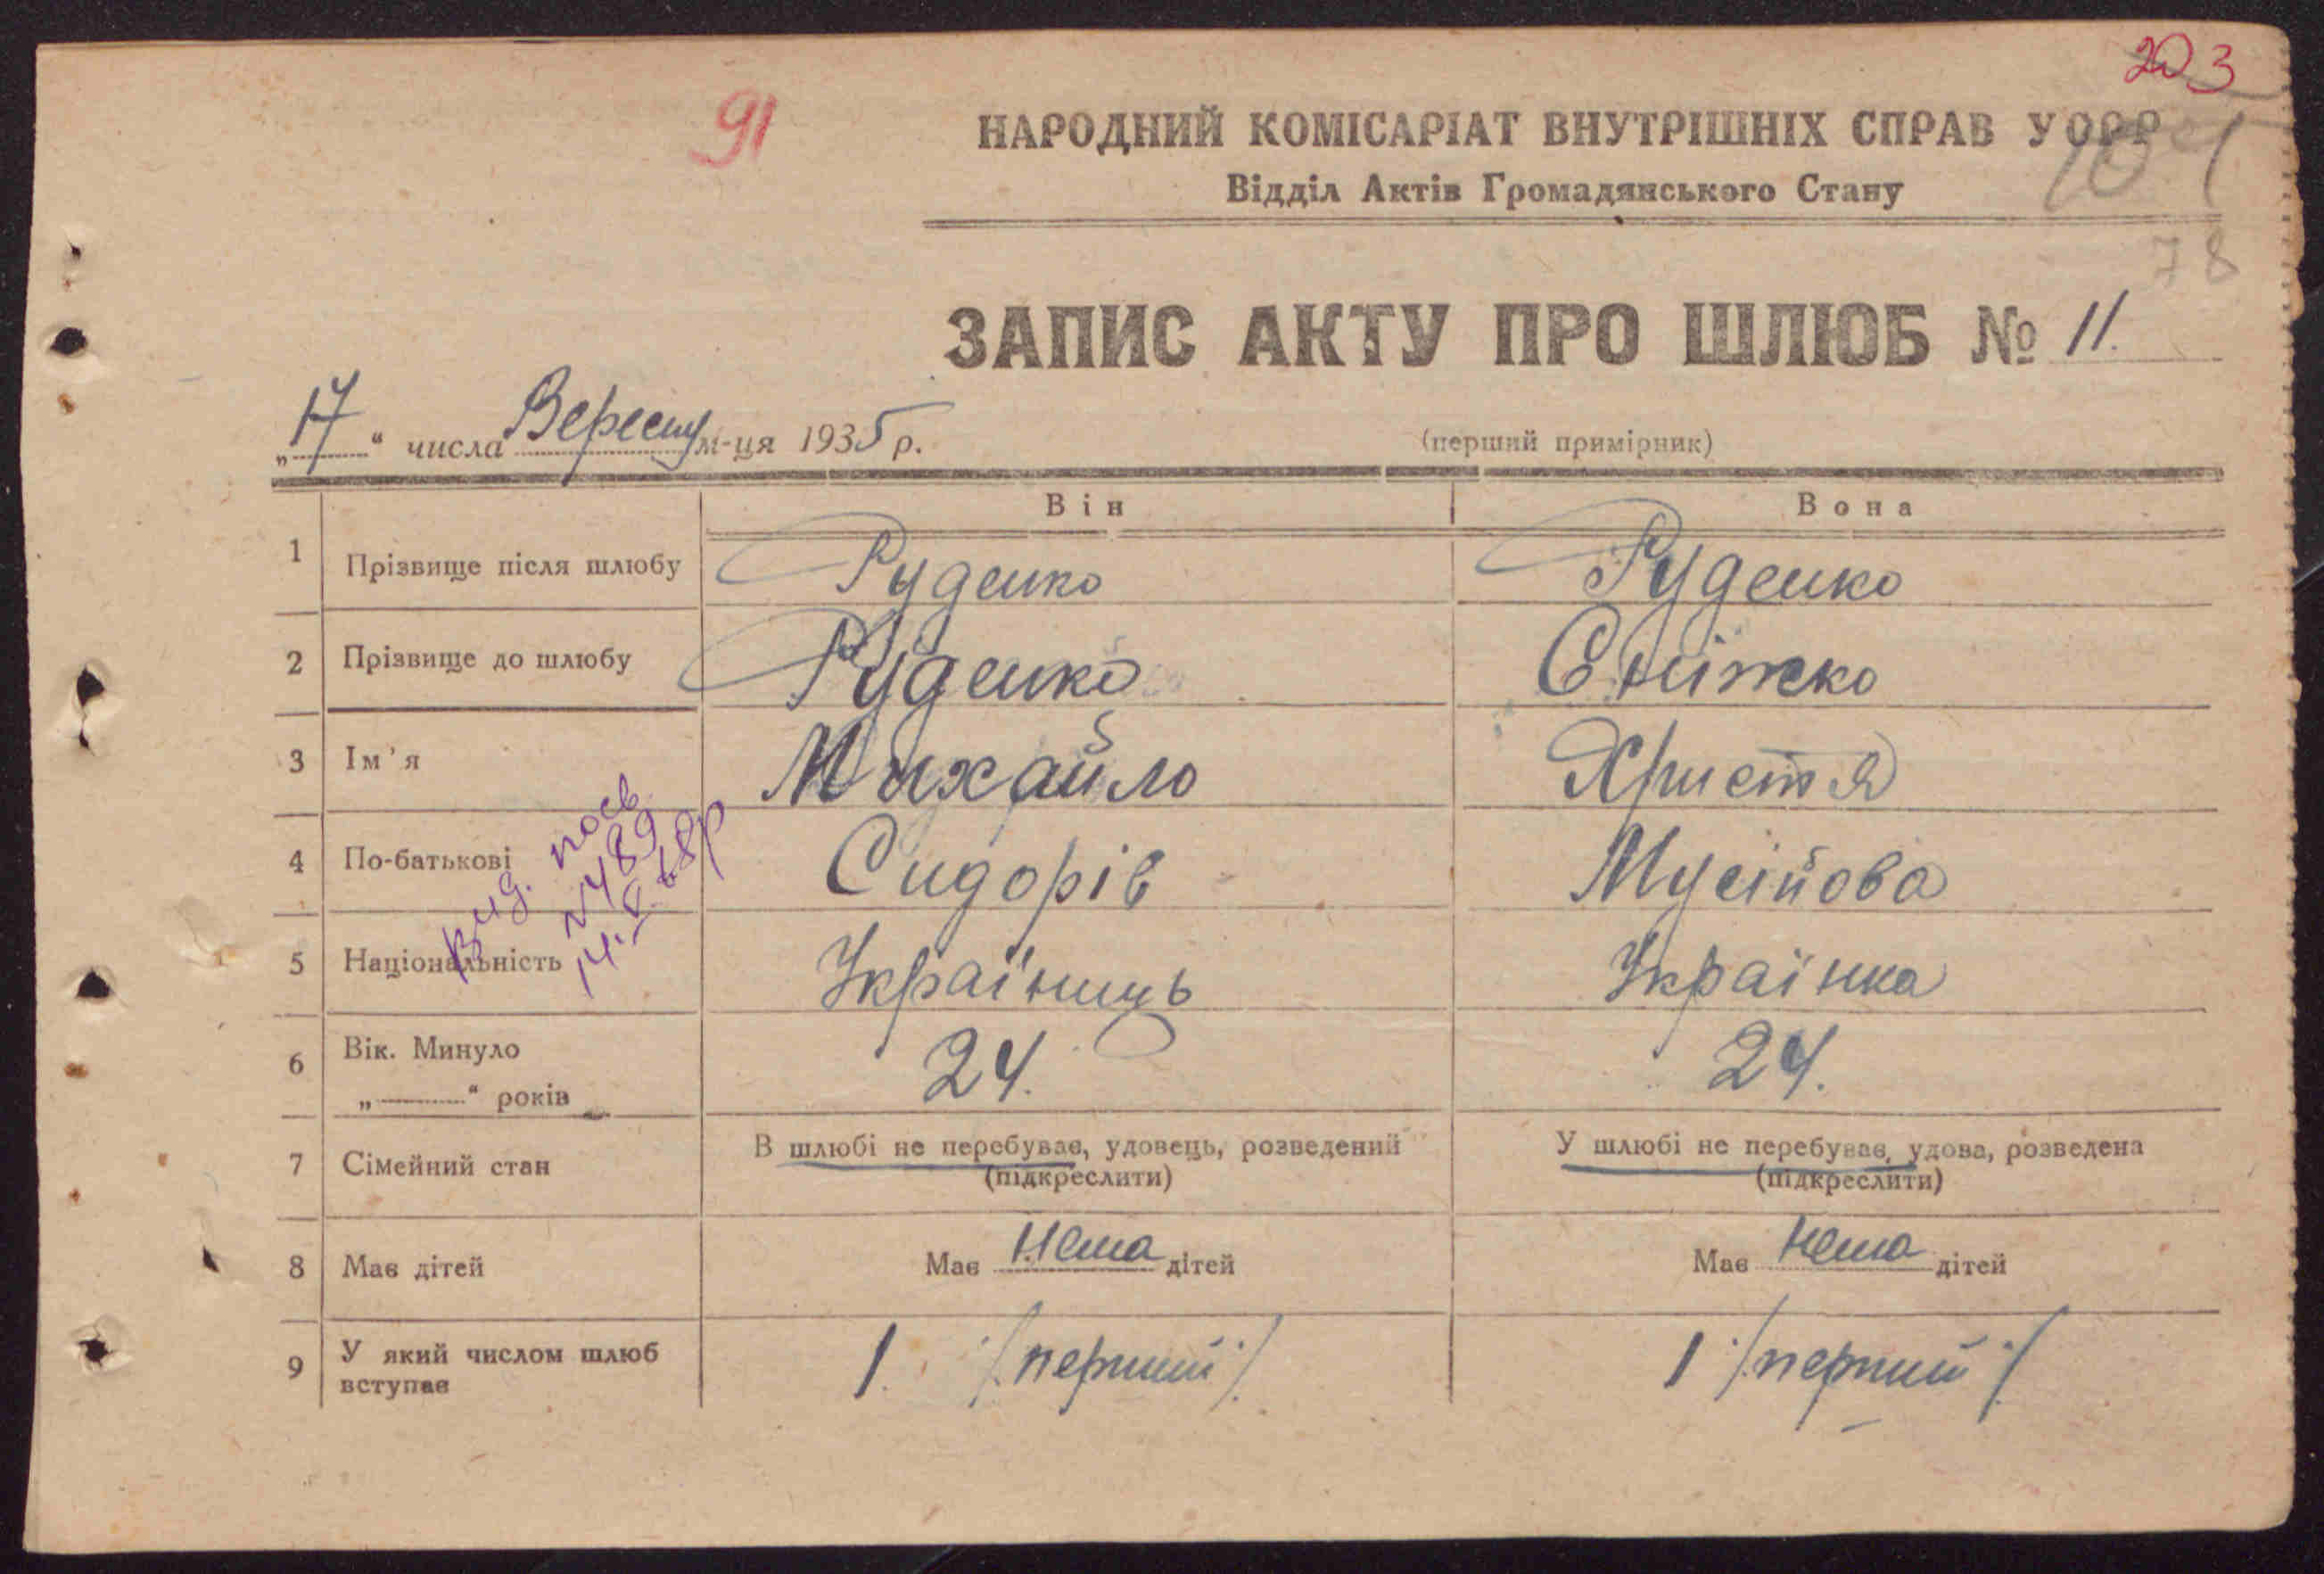 203
91
НАРОДНИЙ КОМІСАРІАТ ВНУТРІШНІХ СПРАВ УСРР
Відділ Актів Громадянського Стану
78
ЗАПИС АКТУ ПРО ШЛЮБ № 11.
„17“ числа Вересня м-ця 1935 р.
(перший примірник)
Він Вона
1 Прізвище після шлюбу Руденко Руденко
2 Прізвище до шлюбу Руденко Сніжко
3 Ім'я Михайло Христя
4 По-батькові Сидорів Мусійова
5 Національність Українець Українка
вид. посв.
№489
14.V.68р
6 Вік. Минуло 24. 24.
„ “ років
7 Сімейний стан В шлюбі не перебував, удовець, розведений У шлюбі не перебував, удова, розведена
(підкреслити) (підкреслити)
8 Має дітей Має Нема дітей Має Нема дітей
9 У який числом шлюб вступає 1. /перший/ 1 /перший/